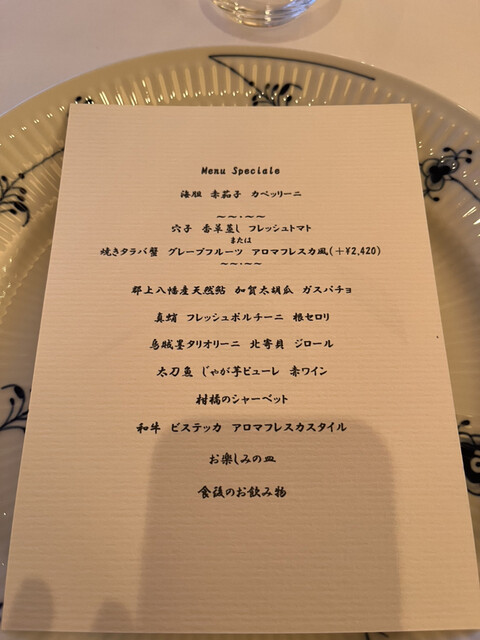 Menu Speciale
海胆 赤茄子 カペッリーニ
～～・～～
穴子 香草蒸し フレッシュトマト
または
焼きタラバ蟹 グレープフルーツ アロマフレスカ風(＋¥2,420)
～～・～～
郡上八幡産天然鮎 加賀太胡瓜 ガスパチョ
真蛸 フレッシュポルチーニ 根セロリ
烏賊墨タリオリーニ 北寄貝 ジロール
太刀魚 じゃが芋ピューレ 赤ワイン
柑橘のシャーベット
和牛 ビステッカ アロマフレスカスタイル
お楽しみの皿
食後のお飲み物